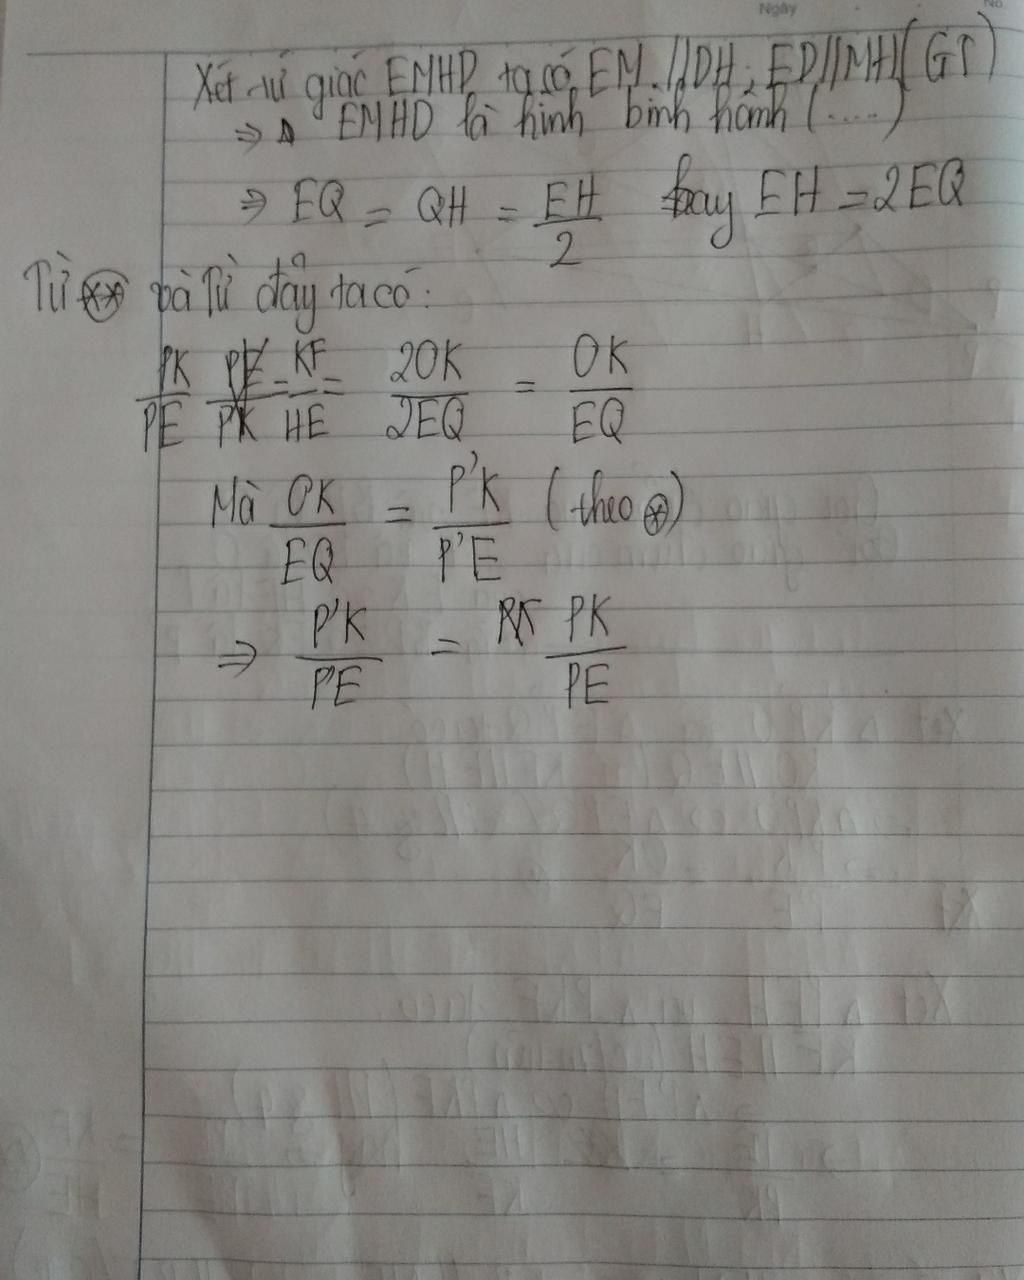 Ngày
No.
Xét tứ giác EMHD ta có EM//DH; ED//MH(GT)
⇒ EMHD là hình bình hành (....)
⇒ EQ = QH = EH/2 hay EH = 2EQ
Từ (**) và Từ đây ta có:
PK/PE = KF/HE = 2OK/2EQ = OK/EQ
Mà OK/EQ = P'K/P'E (theo (*))
⇒ P'K/P'E = PK/PE